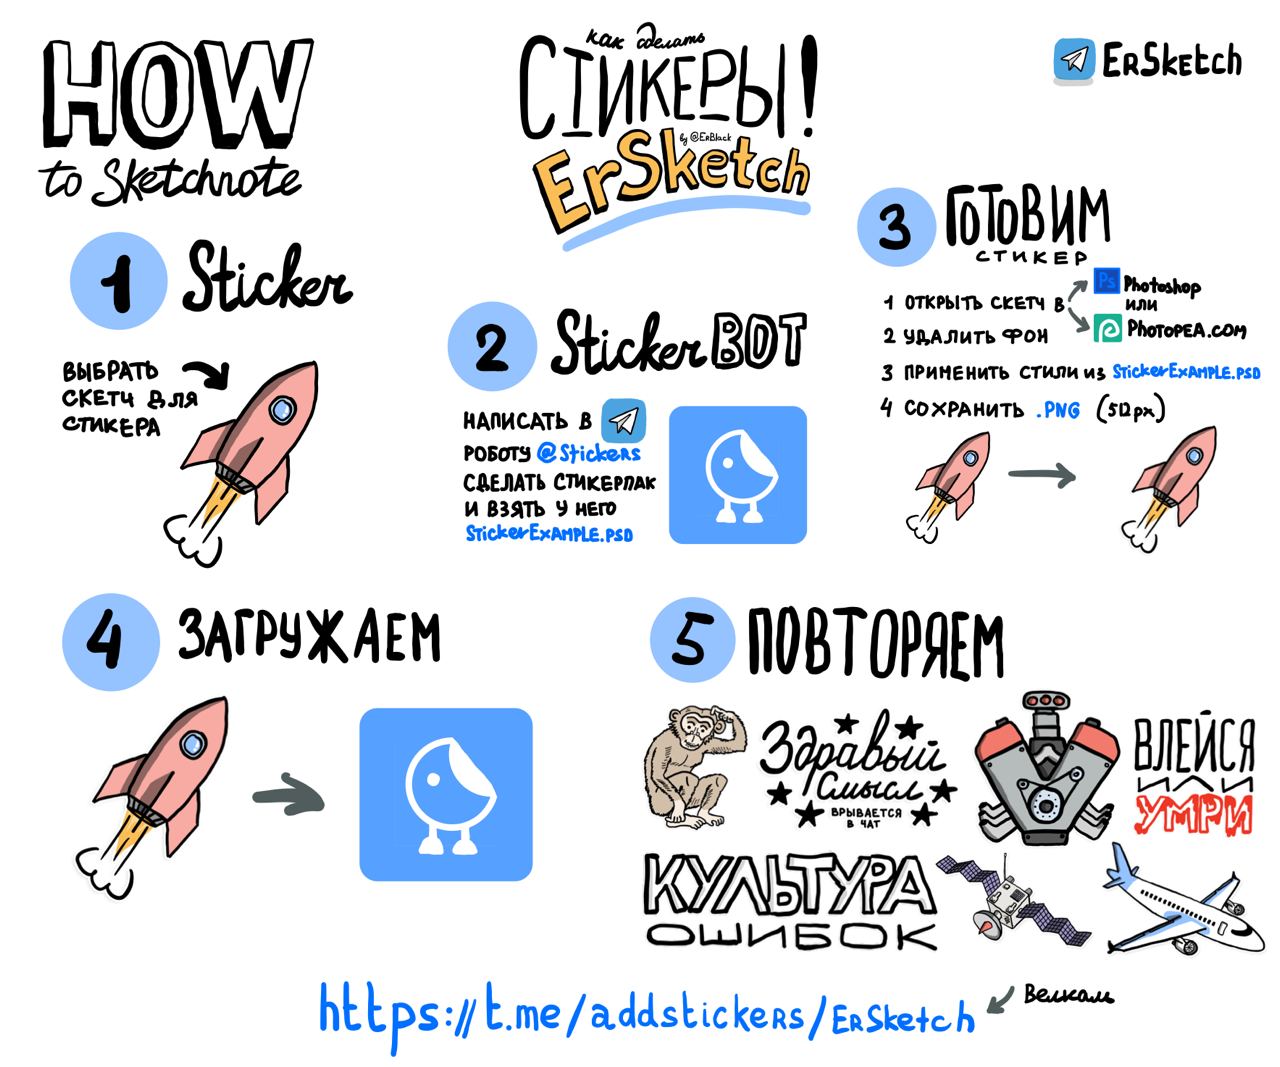 HOW
to Sketchnote
как сделать
СТИКЕРЫ!
by @ErBlack
ErSketch
ErSketch
1 Sticker
ВЫБРАТЬ
СКЕТЧ ДЛЯ
СТИКЕРА
2 Sticker BOT
НАПИСАТЬ В
РОБОТУ @Stickers
СДЕЛАТЬ СТИКЕРПАК
И ВЗЯТЬ У НЕГО
StickerExample.PSD
3 ГОТОВИМ
СТИКЕР
1 ОТКРЫТЬ СКЕТЧ В
Ps Photoshop
ИЛИ
PHOTOPEA.COM
2 УДАЛИТЬ ФОН
3 ПРИМЕНИТЬ СТИЛИ ИЗ StickerExample.PSD
4 СОХРАНИТЬ .PNG (512px)
4 ЗАГРУЖАЕМ
5 ПОВТОРЯЕМ
Здравый
Смысл
ВРЫВАЕТСЯ
В ЧАТ
ВЛЕЙСЯ
ИЛИ
УМРИ
КУЛЬТУРА
ОШИБОК
https://t.me/addstickers/ErSketch
Велкам